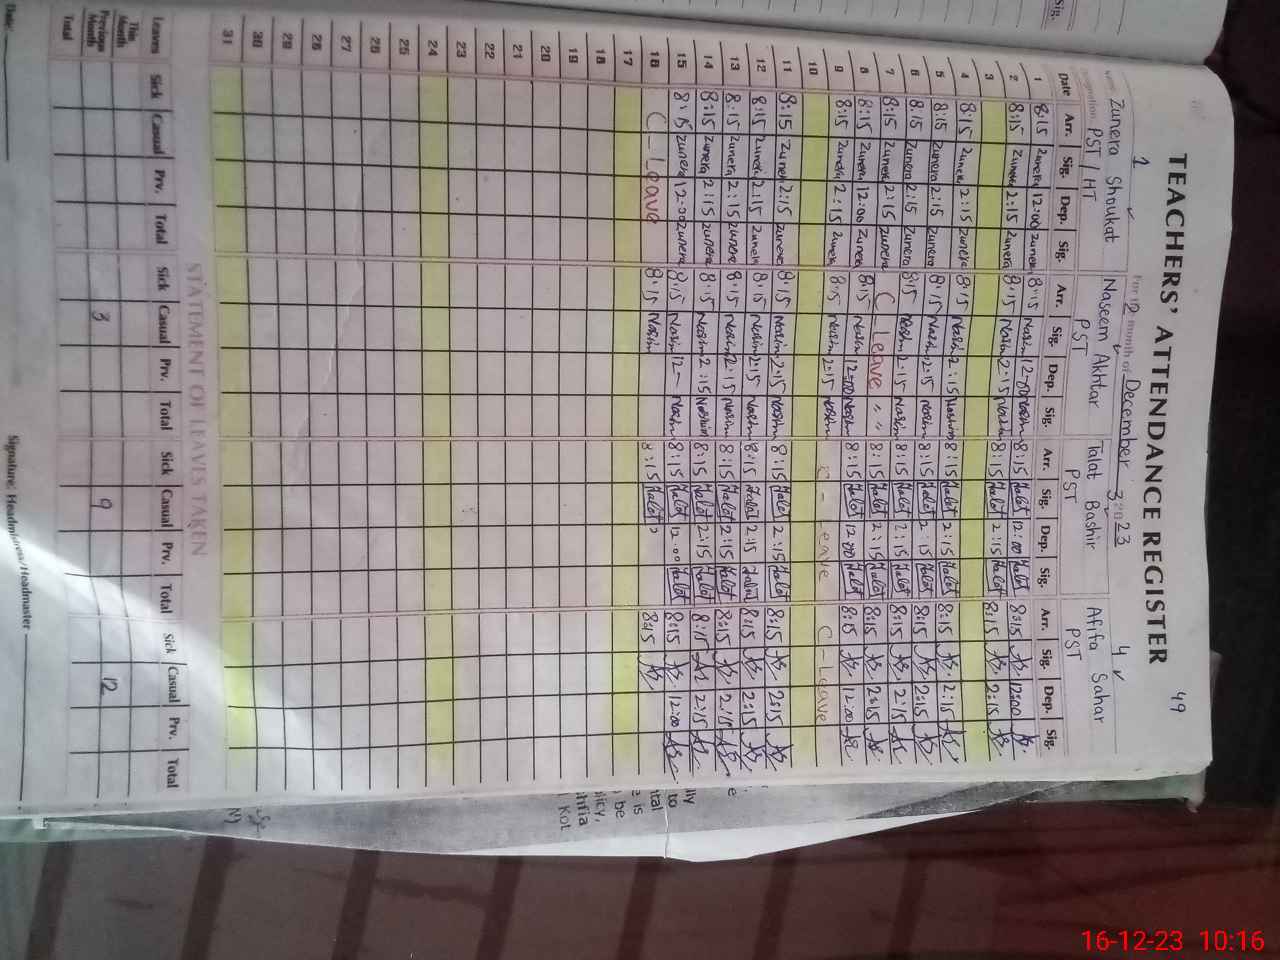 49
TEACHERS' ATTENDANCE REGISTER
1 For 12 month of December 3 2023 4
Name: Zuneira Shoukat Naseem Akhtar Talat Bashir Afifa Sahar
Designation: PST / HT PST PST PST
Date Arr. Sig. Dep. Sig. Arr. Sig. Dep. Sig. Arr. Sig. Dep. Sig. Arr. Sig. Dep. Sig.
1 8:15 Zunera 12:00 Zunera 8:15 Nasim 12-00 Nasim 8:15 Talat 12:00 Talat 8:15 12:00
2 8:15 Zunera 2:15 Zunera 8:15 Nasim 2:15 Nasim 8:15 Talat 2:15 Talat 8:15 2:15
3
4 8:15 Zunera 2:15 Zunera 8:15 Nasim 2:15 Nasim 8:15 Talat 2:15 Talat 8:15 2:15
5 8:15 Zunera 2:15 Zunera 8:15 Nasim 2:15 Nasim 8:15 Talat 2:15 Talat 8:15 2:15
6 8:15 Zunera 2:15 Zunera 8:15 Nasim 2:15 Nasim 8:15 Talat 2:15 Talat 8:15 2:15
7 8:15 Zunera 2:15 Zunera C Leave " " 8:15 Talat 2:15 Talat 8:15 2:15
8 8:15 Zunera 12:00 Zunera 8:15 Nasim 12:00 Nasim 8:15 Talat 12:00 Talat 8:15 12:00
9 8:15 Zunera 2:15 Zunera 8:15 Nasim 2:15 Nasim C - Leave C - Leave
10
11 8:15 Zunera 2:15 Zunera 8:15 Nasim 2:15 Nasim 8:15 Talat 2:15 Talat 8:15 2:15
12 8:15 Zunera 2:15 Zunera 8:15 Nasim 2:15 Nasim 8:15 Talat 2:15 Talat 8:15 2:15
13 8:15 Zunera 2:15 Zunera 8:15 Nasim 2:15 Nasim 8:15 Talat 2:15 Talat 8:15 2:15
14 8:15 Zunera 2:15 Zunera 8:15 Nasim 2:15 Nasim 8:15 Talat 2:15 Talat 8:15 2:15
15 8:15 Zunera 12:00 Zunera 8:15 Nasim 12- Nasim 8:15 Talat 12:00 Talat 8:15 12:00
16 C - Leave 8:15 Nasim 8:15 Talat 8:15
17
18
19
20
21
22
23
24
25
26
27
28
29
30
31
STATEMENT OF LEAVES TAKEN
Leaves Sick Casual Prv. Total Sick Casual Prv. Total Sick Casual Prv. Total Sick Casual Prv. Total
This Month
Previous Month 3 9 12
Total
Date: Signature: Headmistress/Headmaster
Sig.
16-12-23 10:16